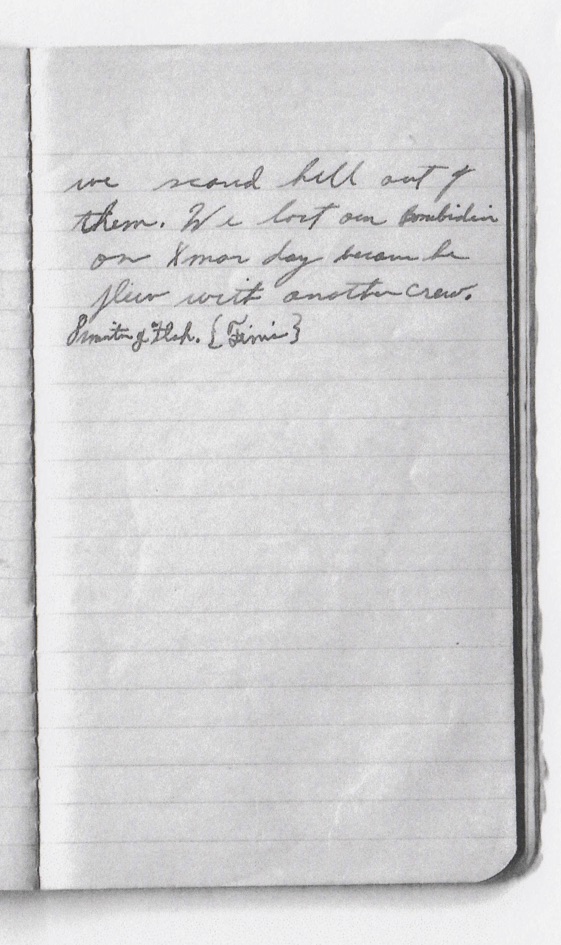 we scared hell out of
them. We lost our Bombidier
on Xmas day because he
flew with another crew.
8 minutes of Flak. {Fini}